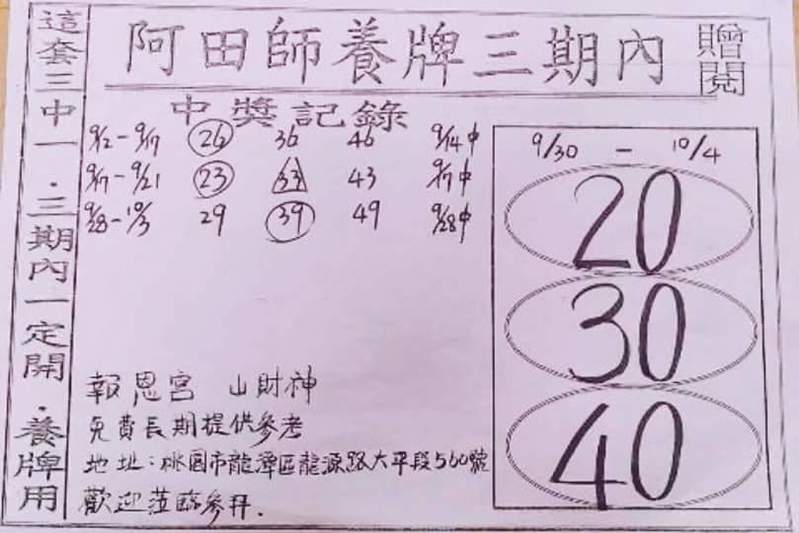 阿田師養牌三期內
贈閱
這套三中一．三期內一定開．養牌用
中獎記錄
9/12-9/19 26 36 46 9/14中
9/17-9/21 23 33 43 9/17中
9/28-10/3 29 39 49 9/28中
9/30 - 10/4
20
30
40
報恩宮 山財神
免費長期提供參考
地址：桃園市龍潭區龍源路大平段560號
歡迎蒞臨參拜.